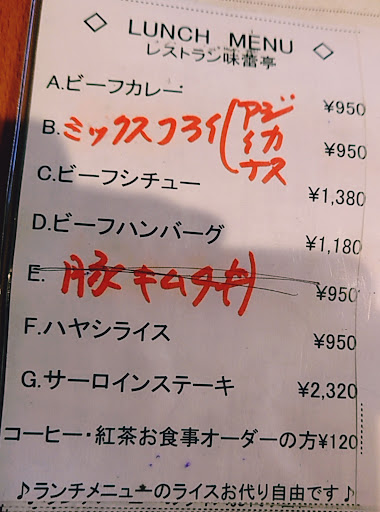 ◇ LUNCH MENU ◇
レストラン味蕾亭
A.ビーフカレー ¥950
B.ミックスフライ(アジ イカ ナス ¥950
C.ビーフシチュー ¥1,380
D.ビーフハンバーグ ¥1,180
E. 豚キムチ丼 ¥950
F.ハヤシライス ¥950
G.サーロインステーキ ¥2,320
コーヒー・紅茶お食事オーダーの方¥120
♪ランチメニューのライスお代り自由です♪